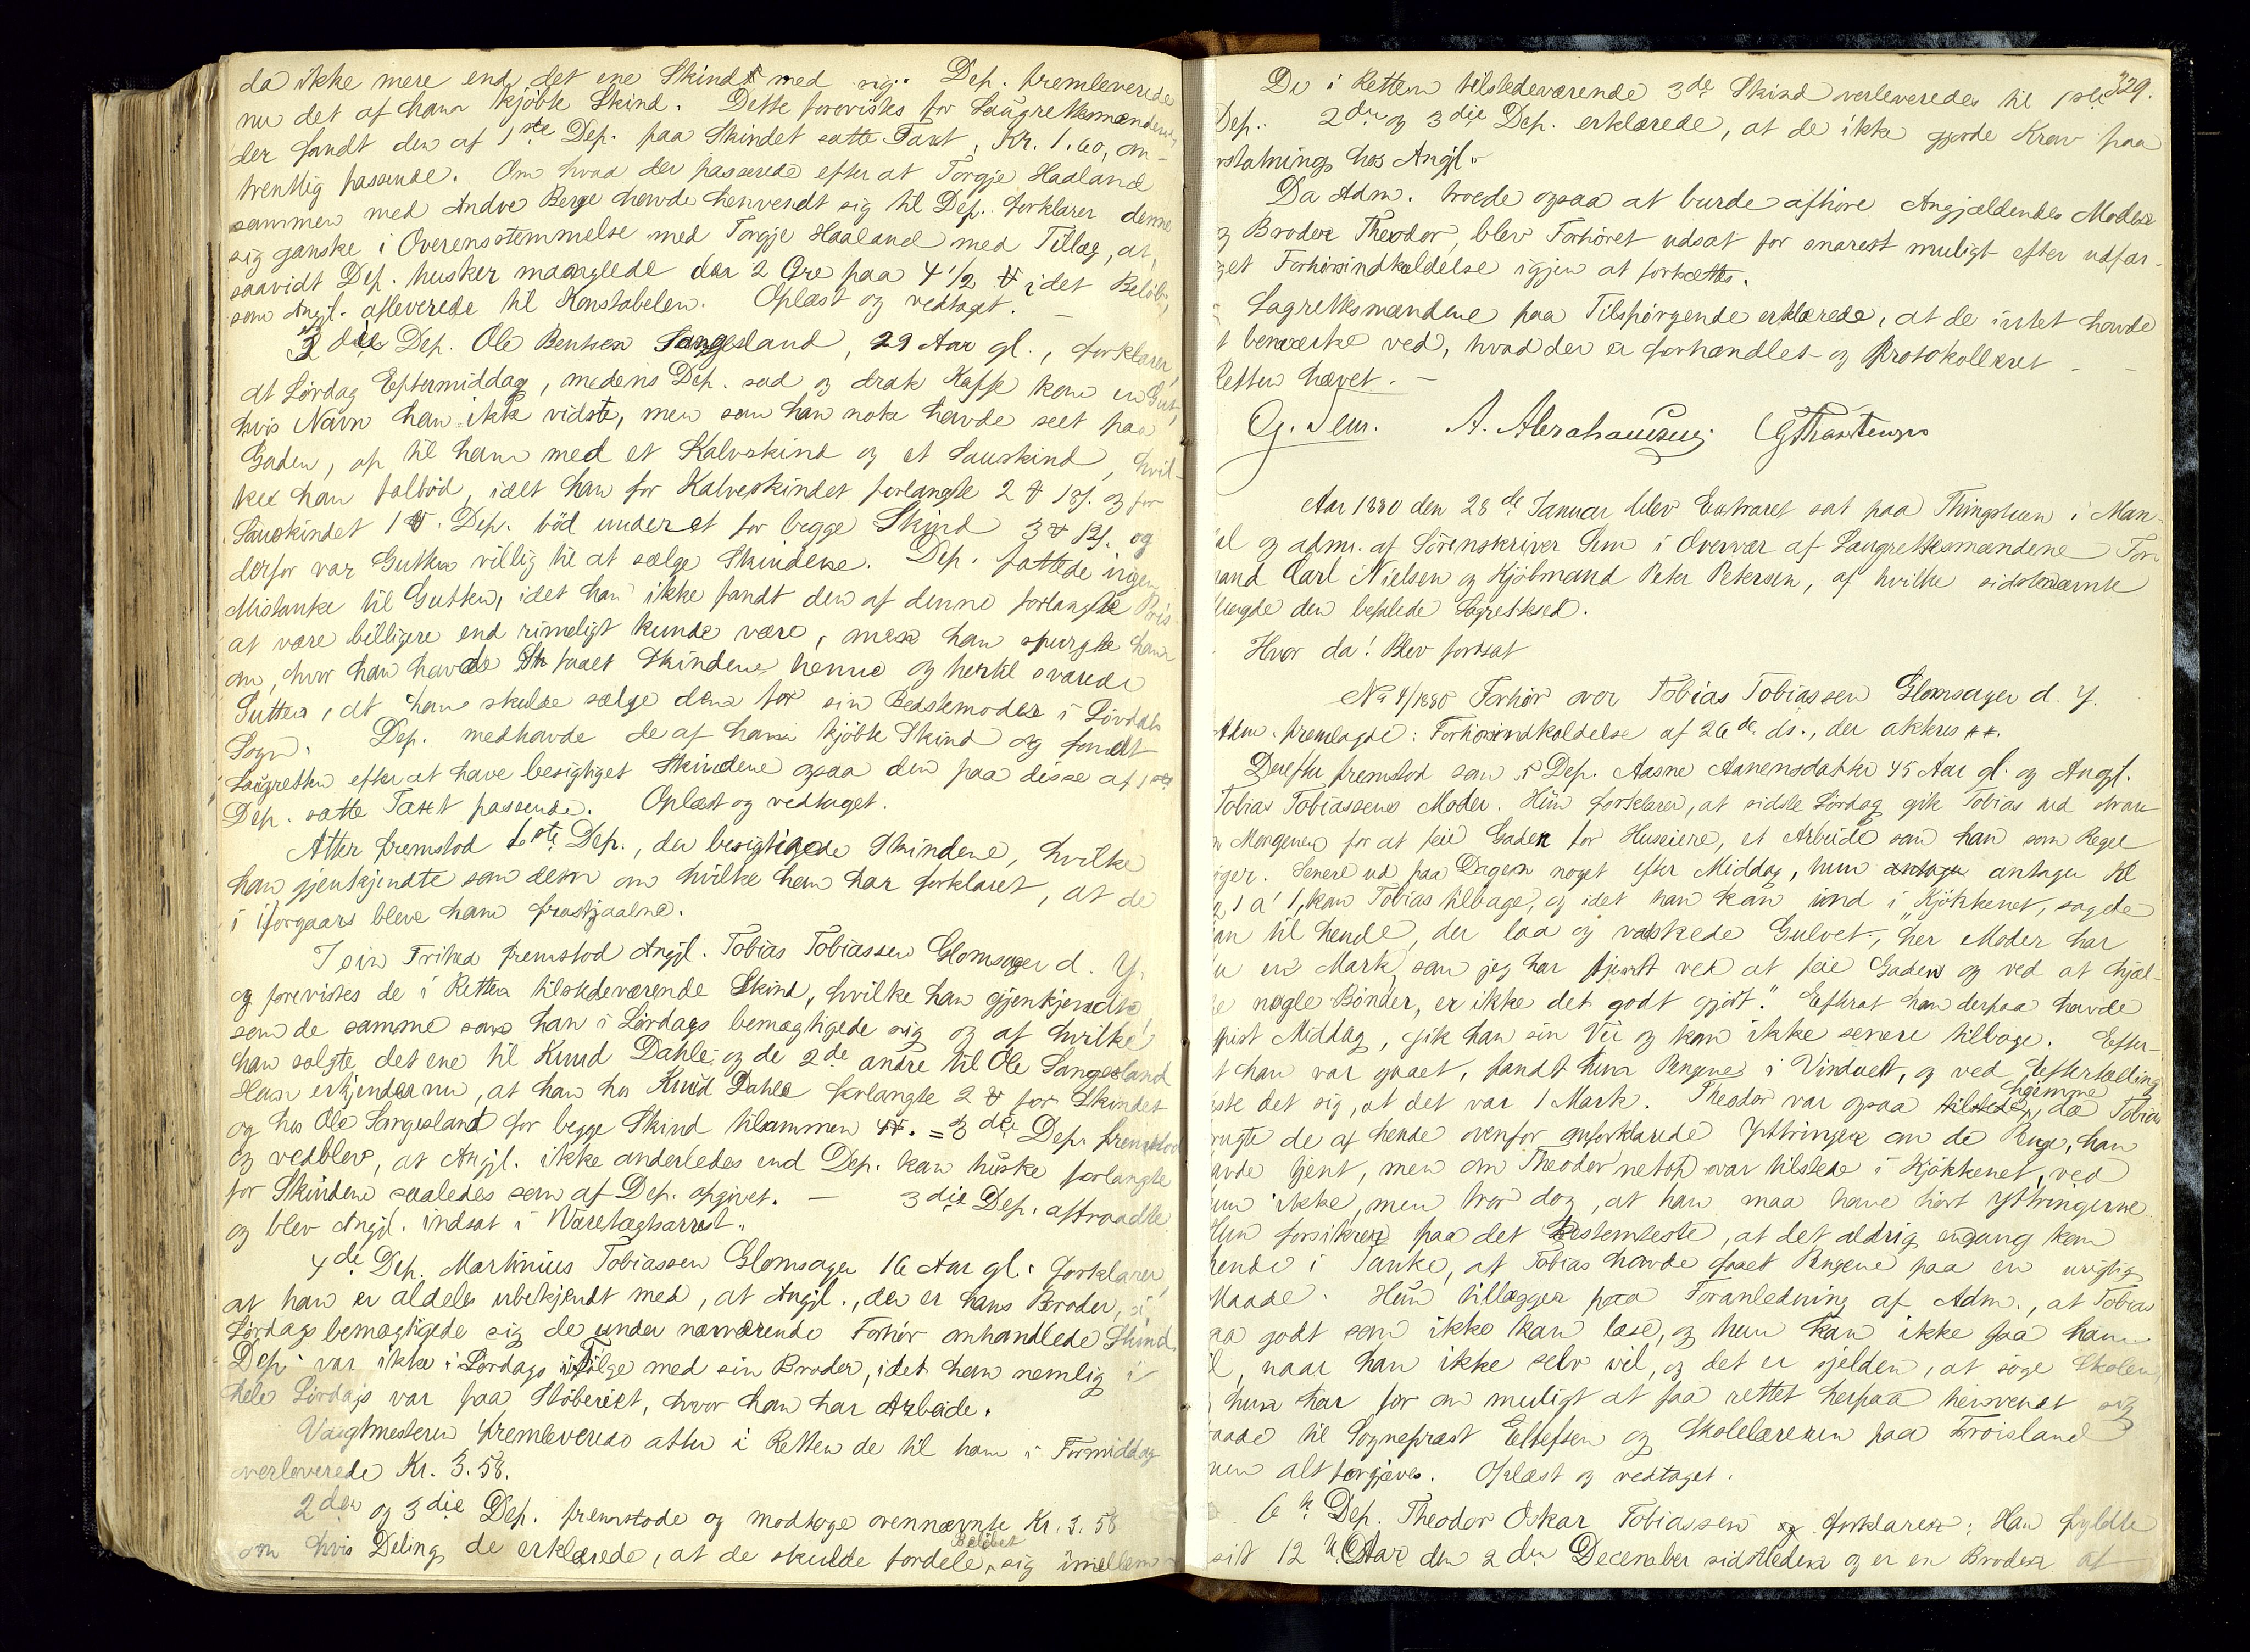 da ikke mere end det ene Skind med sig. Dep. fremleverede
nu det af ham kjöbte Skind. Dette forevistes for Laugrettesmændene
der fandt den af 1ste Dep. paa Skindet satte Taxt, Kr. 1.60, om-
trentlig passende. Om hvad der passerede efter at Torgje Haaland
sammen med Andre Berge havde henvendt sig til Dep. forklarer denne
sig ganske i Overensstemmelse med Torgje Haaland med Tillæg, at,
saavidt Dep. husker manglede der 2 Øre paa 4 1/2 i det Belöb,
som Angjl. afleverede til Konstabelen. Oplæst og vedtaget. —
3die Dep. Ole Bentsen Sangesland, 29 Aar gl., forklarer,
at Lördag Eftermiddag, medens Dep. sad og drak Kaffe kom en Gut,
hvis Navn han ikke vidste, men som han nok havde seet paa
Gaden, op til ham med et Kalveskind og et Saueskind, hvil-
ket han falböd, idet han for Kalveskindet forlangte 2 18 og for
Saueskindet 1. Dep. böd under et for begge Skind 3 12 og
derfor var Gutten villig til at sælge Skindene. Dep. fattede ingen
Mistanke til Gutten, idet han ikke fandt den af denne forlangte Pris
at være billigere end rimeligt kunde være, men han spurgte ham
om, hvor han havde faaet Skindene henne og hertil svarede
Gutten, at han skulde sælge dem for sin Bedstemoder i Lövdals
Sogn. Dep. medhavde de af ham kjöbte Skind og fandt
Laugretten efter at have besigtiget Skindene ogsaa den paa disse af 1ste
Dep. satte Taxt passende. Oplæst og vedtaget.
Atter fremstod 1ste Dep., der besigtigede Skindene, hvilke
han gjenkjendte som dem om hvilke han har forklaret, at de
i iforgaars bleve ham frastjaalne.
I sin Frihed fremstod Angjl. Tobias Tobiassen Glomsager d. Y.
og forevistes de i Retten tilstedeværende Skind, hvilke han gjenkjendte
som de samme som han i Lördags bemægtigede sig og af hvilke
han solgte det ene til Knud Dahle og de 2de andre til Ole Sangesland
Han erkjender nu, at han hos Knud Dahle forlangte 2 for Skindet
og hos Ole Sangesland for begge Skind tilsammen = 3die Dep. fremstod
og vedblev, at Angjl. ikke anderledes end Dep. kan huske forlangte
for Skindene saaledes som af Dep. opgivet. — 3die Dep. aftraadte
og blev Angjl. indsat i Varetægtsarrest.
4de Dep. Martinius Tobiassen Glomsager 16 Aar gl. forklarer,
at han er aldeles ubekjendt med, at Angjl., der er hans Broder, i
Lördags bemægtigede sig de under nærværende Forhör omhandlede Skind.
Dep. var ikke i Lördags ifölge med sin Broder, idet han nemlig i
hele Lördags var paa Stöberiet, hvor han har Arbeide.
Vagtmesteren fremleverede atter i Retten de til ham i Formiddag
overleverede Kr. 3.58.
2den og 3die Dep. fremstode og modtoge ovennævnte Kr. 3.58
om hvis Deling de erklærede, at de skulde fordele Belöbet sig imellem
329.
De i Retten tilstedeværende 3de Skind overleveredes til 1ste
Dep. 2den og 3die Dep. erklærede, at de ikke gjorde Krav paa
rstatning hos Angjl.
Da Adm. troede ogsaa at burde afhöre Angjældendes Moder
g Broder Theodor, blev Forhöret udsat for snarest muligt efter udfær-
get Forhörsindkaldelse igjen at fortsættes.
Lagrettesmændene paa Tilspörgende erklærede, at de intet havde
t bemærke ved, hvad der er forhandlet og Protokolleret —
Retten hævet. —
G. Sem. A. Abrahamsen
Aar 1880 den 28de Januar blev Extraret sat paa Thingstuen i Man-
al og adm. af Sörenskriver Sem i Overvær af Laugrettesmændene For-
mand Carl Nielsen og Kjöbmand Peter Petersen, af hvilke sidstnævnte
flængde den befalede Lagretteed.
Hvor da! Blev fortsat
No 4/1880 Forhör over Tobias Tobiassen Glomsager d. Y.
Adm. fremlagde: Forhörsindkaldelse af 26de ds., der akteres
Derefter fremstod som 5 Dep. Aasne Aanensdatter 45 Aar gl. og Angjl.
Tobias Tobiassens Moder. Hun forklarer, at sidste Lördag gik Tobias ud strax
m Morgenen for at feie Gaden for Huseiere, et Arbeide som han som Regel
öger. Senere ud paa Dagen noget efter Middag, hun antager Kl
1 a 1, kom Tobias tilbage, og idet han kom ind i Kjökkenet, sagde
an til hende, der laa og vaskede Gulvet, "her Moder har
u en Mark, som jeg har tjent ved at feie Gaden og ved at hjæl-
e nogle Bönder, er ikke det godt gjört." Efterat han derpaa havde
spist Middag, gik han sin Vei og kom ikke senere tilbage. Efter-
t han var gaaet, fandt hun Pengene i Vinduet, og ved Eftertælling
iste det sig, at det var 1 Mark. Theodor var ogsaa tilstede hjemme, da Tobias
rugte de af hende ovenfor anforklarede Yttringer om de Penge, han
avde tjent, men om Theodor netop var tilstede i Kjökkenet, ved
un ikke, men tror dog, at han maa have hört Yttringerne
Hun forsikrer paa det Bestemteste, at det aldrig engang kom
hende i Tanke, at Tobias havde faaet Pengene paa en urigtig
Maade. Hun tillægger paa Foranledning af Adm., at Tobias
aa godt som ikke kan læse, og hun kan ikke faa ham
il, naar han ikke selv vil, og det er sjelden, at söge Skolen,
hun har for om muligt at faa rettet herpaa henvendt sig
aade til Sogneprest Ellefsen og Skolelæreren paa Fröisland
men alt forgjæves. Oplæst og vedtaget.
6te Dep. Theodor Oskar Tobiassen forklarer: Han fyldte
sit 12te Aar den 2den December sidstleden og er en Broder af